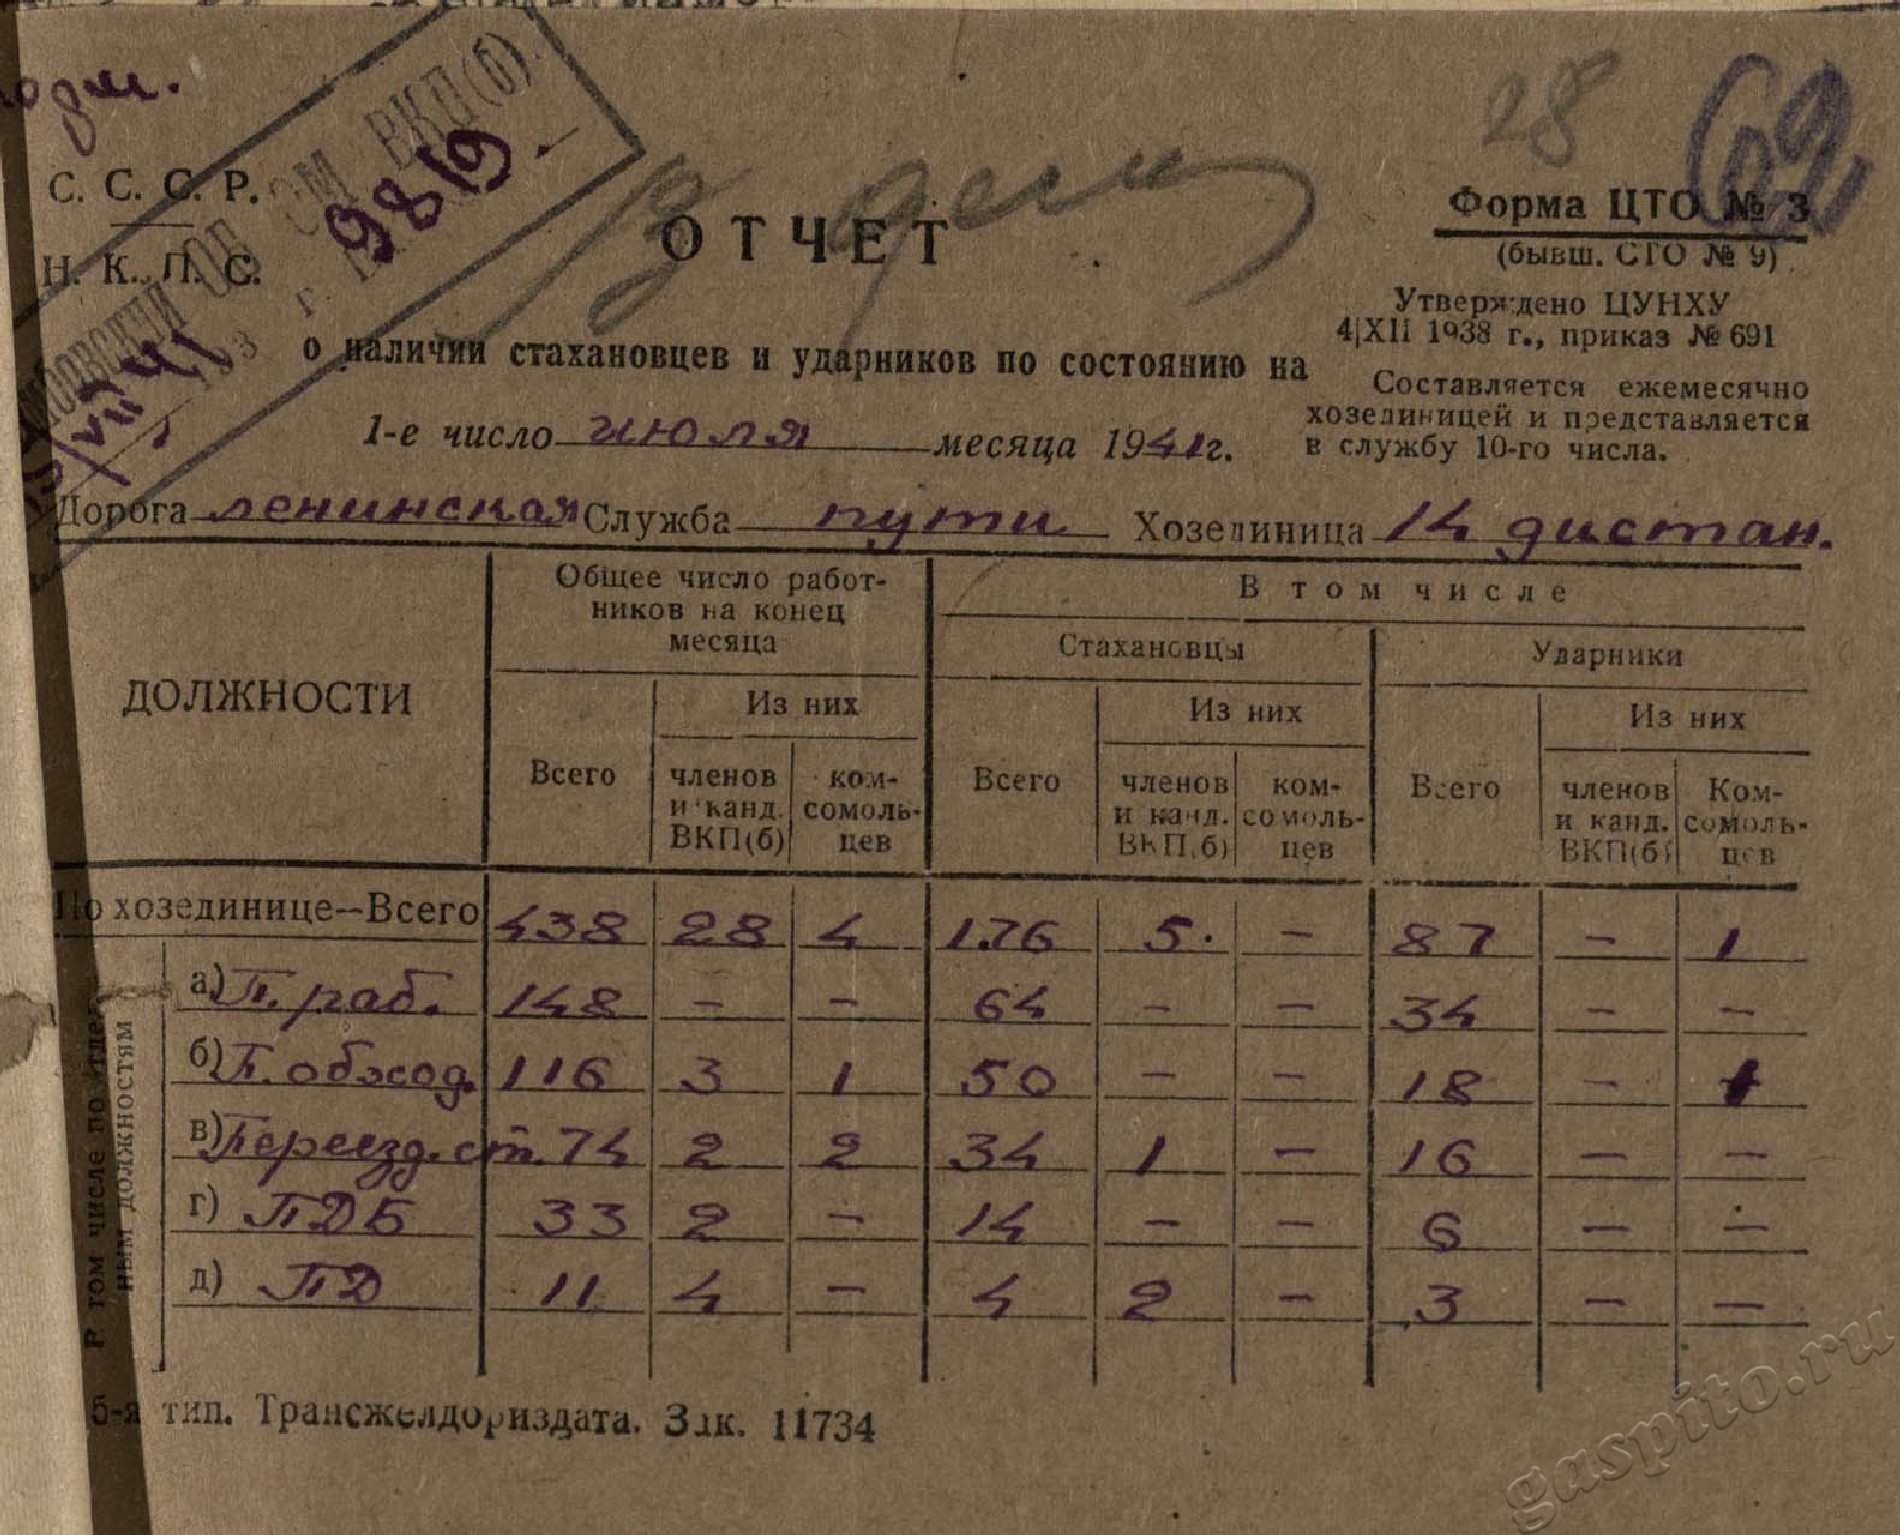 С. С. С. Р.
Н. К. П. С.
ОМ ВКП(б)
9819
28
62
ОТЧЕТ
о наличии стахановцев и ударников по состоянию на
1-е число июля месяца 1941г.
Форма ЦТО № 3
(бывш. СТО № 9)
Утверждено ЦУНХУ
4|XII 1938 г., приказ № 691
Составляется ежемесячно
хозединицей и представляется
в службу 10-го числа.
Дорога Ленинская Служба пути Хозединица 14 дистан.
ДОЛЖНОСТИ
Общее число работ-
ников на конец
месяца
В том числе
Стахановцы
Ударники
Из них
Из них
Из них
Всего
членов
и канд.
ВКП(б)
ком-
сомоль-
цев
Всего
членов
и канд.
ВКП(б)
ком-
сомоль-
цев
Всего
членов
и канд.
ВКП(б)
Ком-
сомоль-
цев
По хозединице—Всего 438 28 4 176 5. - 87 - 1
а) П. раб. 148 - - 64 - - 34 - -
б) П. обход. 116 3 1 50 - - 18 - 1
в) Переезд. ст. 74 2 2 34 1 - 16 - -
г) ПДБ 33 2 - 14 - - 6 - -
д) ПД 11 4 - 4 2 - 3 - -
том числе по
ным должностям
6-я тип. Трансжелдориздата. Зак. 11734
gaspito.ru